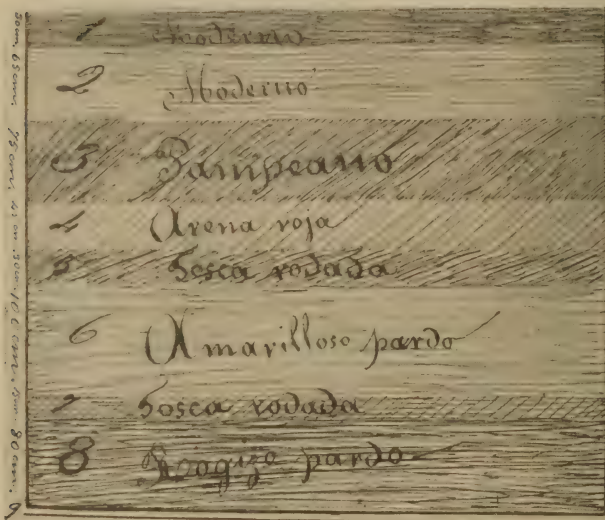 1 Moderno
2 Moderno
3 Pampeano
4 Arena roja
5 Tosca rodada
6 Amarilloso pardo
7 Tosca rodada
8 Rogizo pardo
65 cm. 75 cm.
80 cm.